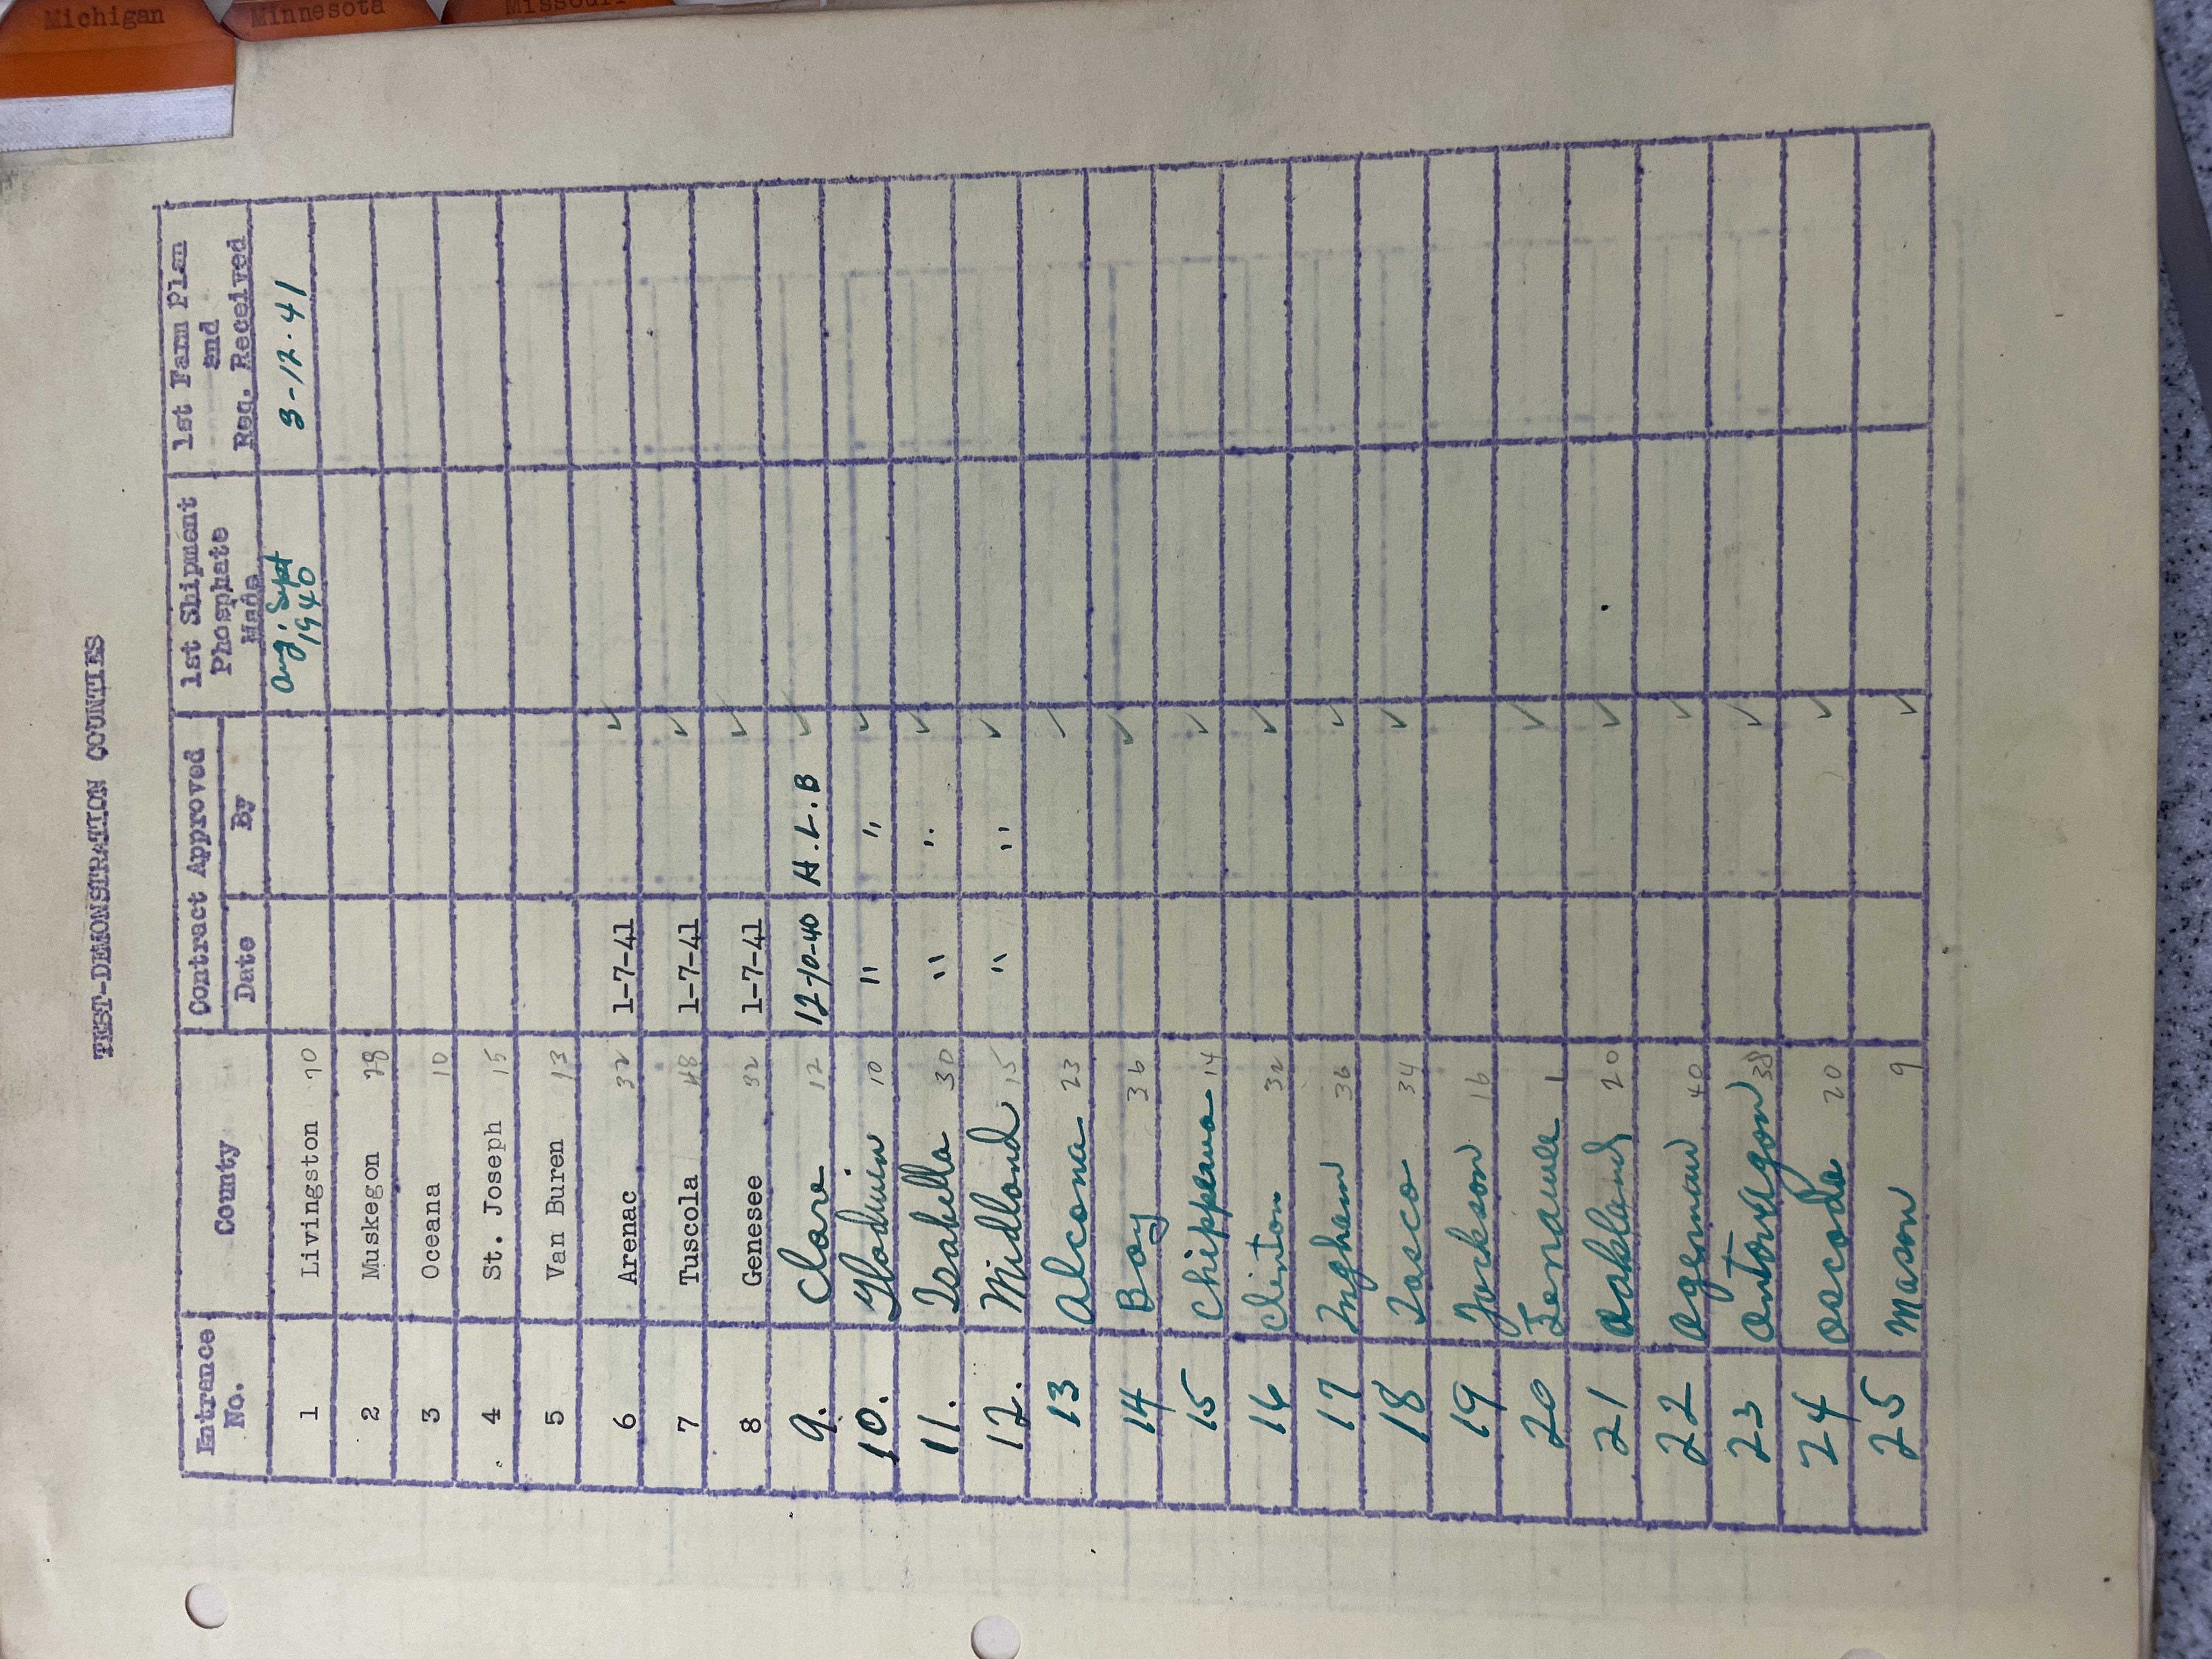 TEST-DEMONSTRATION COUNTIES
Entrance No. County Contract Approved Date By 1st Shipment Phosphate Made 1st Farm Plan and Req. Received
1 Livingston 70 Aug. Sept 1940 3-12-41
2 Muskegon 28
3 Oceana 10
4 St. Joseph 15
5 Van Buren 13
6 Arenac 32 1-7-41 ✓
7 Tuscola 48 1-7-41 ✓
8 Genesee 32 1-7-41 ✓
9. Clare 12 12-10-40 H.L.B ✓
10. Gladwin 10 " " ✓
11. Isabella 30 " " ✓
12. Midland 15 " " ✓
13 Alcona 23 ✓
14 Bay 36 ✓
15 Chippewa 14 ✓
16 Clinton 32 ✓
17 Ingham 36 ✓
18 Iosco 34 ✓
19 Jackson 16
20 Lenawee 1 ✓
21 Oakland 20 ✓
22 Ogemaw 40 ✓
23 Ontonagon 38 ✓
24 Oscoda 20 ✓
25 Mason 9 ✓
Michigan
Minnesota